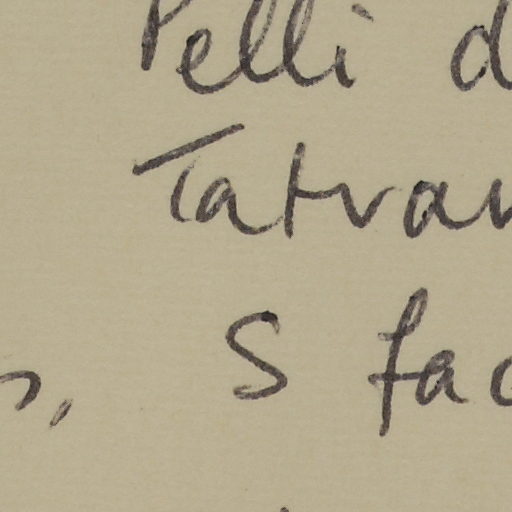 Pelli d
Tatvan
s, S fac